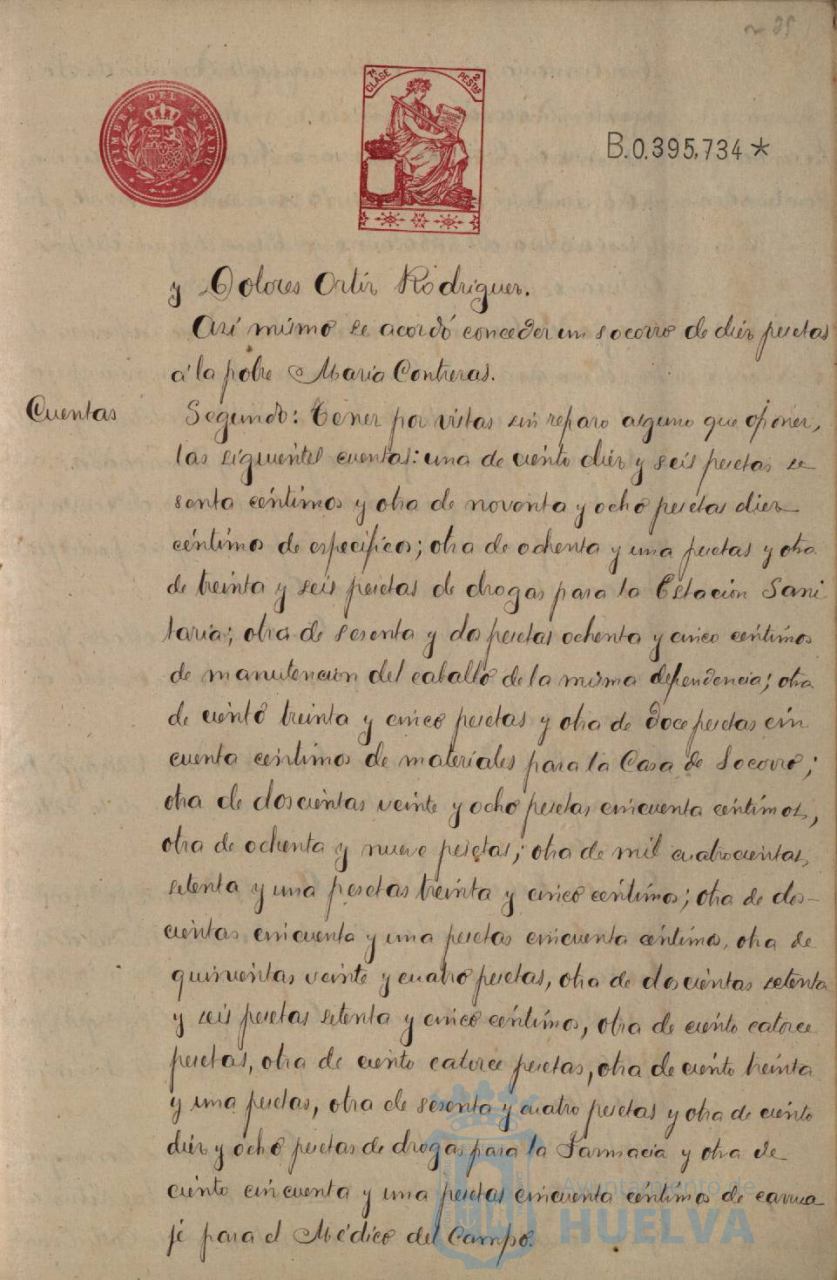 TIMBRE DEL ESTADO
7ª CLASE 2 PESTAS
B.0.395,734*
y Dolores Ortiz Rodriguez.
Asi mismo se acordó conceder un socorro de diez pesetas
á la pobre Maria Contreras.
Cuentas
Segundo: Tener por vistas sin reparo alguno que oponer,
las siguientes cuentas: una de ciento diez y seis pesetas se
senta céntimos y otra de noventa y ocho pesetas diez
céntimos de especificos; otra de ochenta y una pesetas y otra
de treinta y seis pesetas de drogas para la Estación Sani
taria; otra de sesenta y dos pesetas ochenta y cinco céntimos
de manutención del caballo de la misma dependencia; otra
de ciento treinta y cinco pesetas y otra de doce pesetas cin
cuenta centimos de materiales para la Casa de Socorro;
otra de doscientas veinte y ocho pesetas cincuenta céntimos,
otra de ochenta y nueve pesetas; otra de mil cuatrocientas
setenta y una pesetas treinta y cinco céntimos; otra de dos-
cientas cincuenta y una pesetas cincuenta céntimos, otra de
quinientas veinte y cuatro pesetas, otra de doscientas setenta
y seis pesetas setenta y cinco céntimos, otra de ciento catorce
pesetas, otra de ciento catorce pesetas, otra de ciento treinta
y una pesetas, otra de sesenta y cuatro pesetas y otra de ciento
diez y ocho pesetas de drogas para la Farmacia y otra de
ciento cincuenta y una pesetas cincuenta céntimos de carrua
je para el Médico del Campo.
Ayuntamiento de
HUELVA